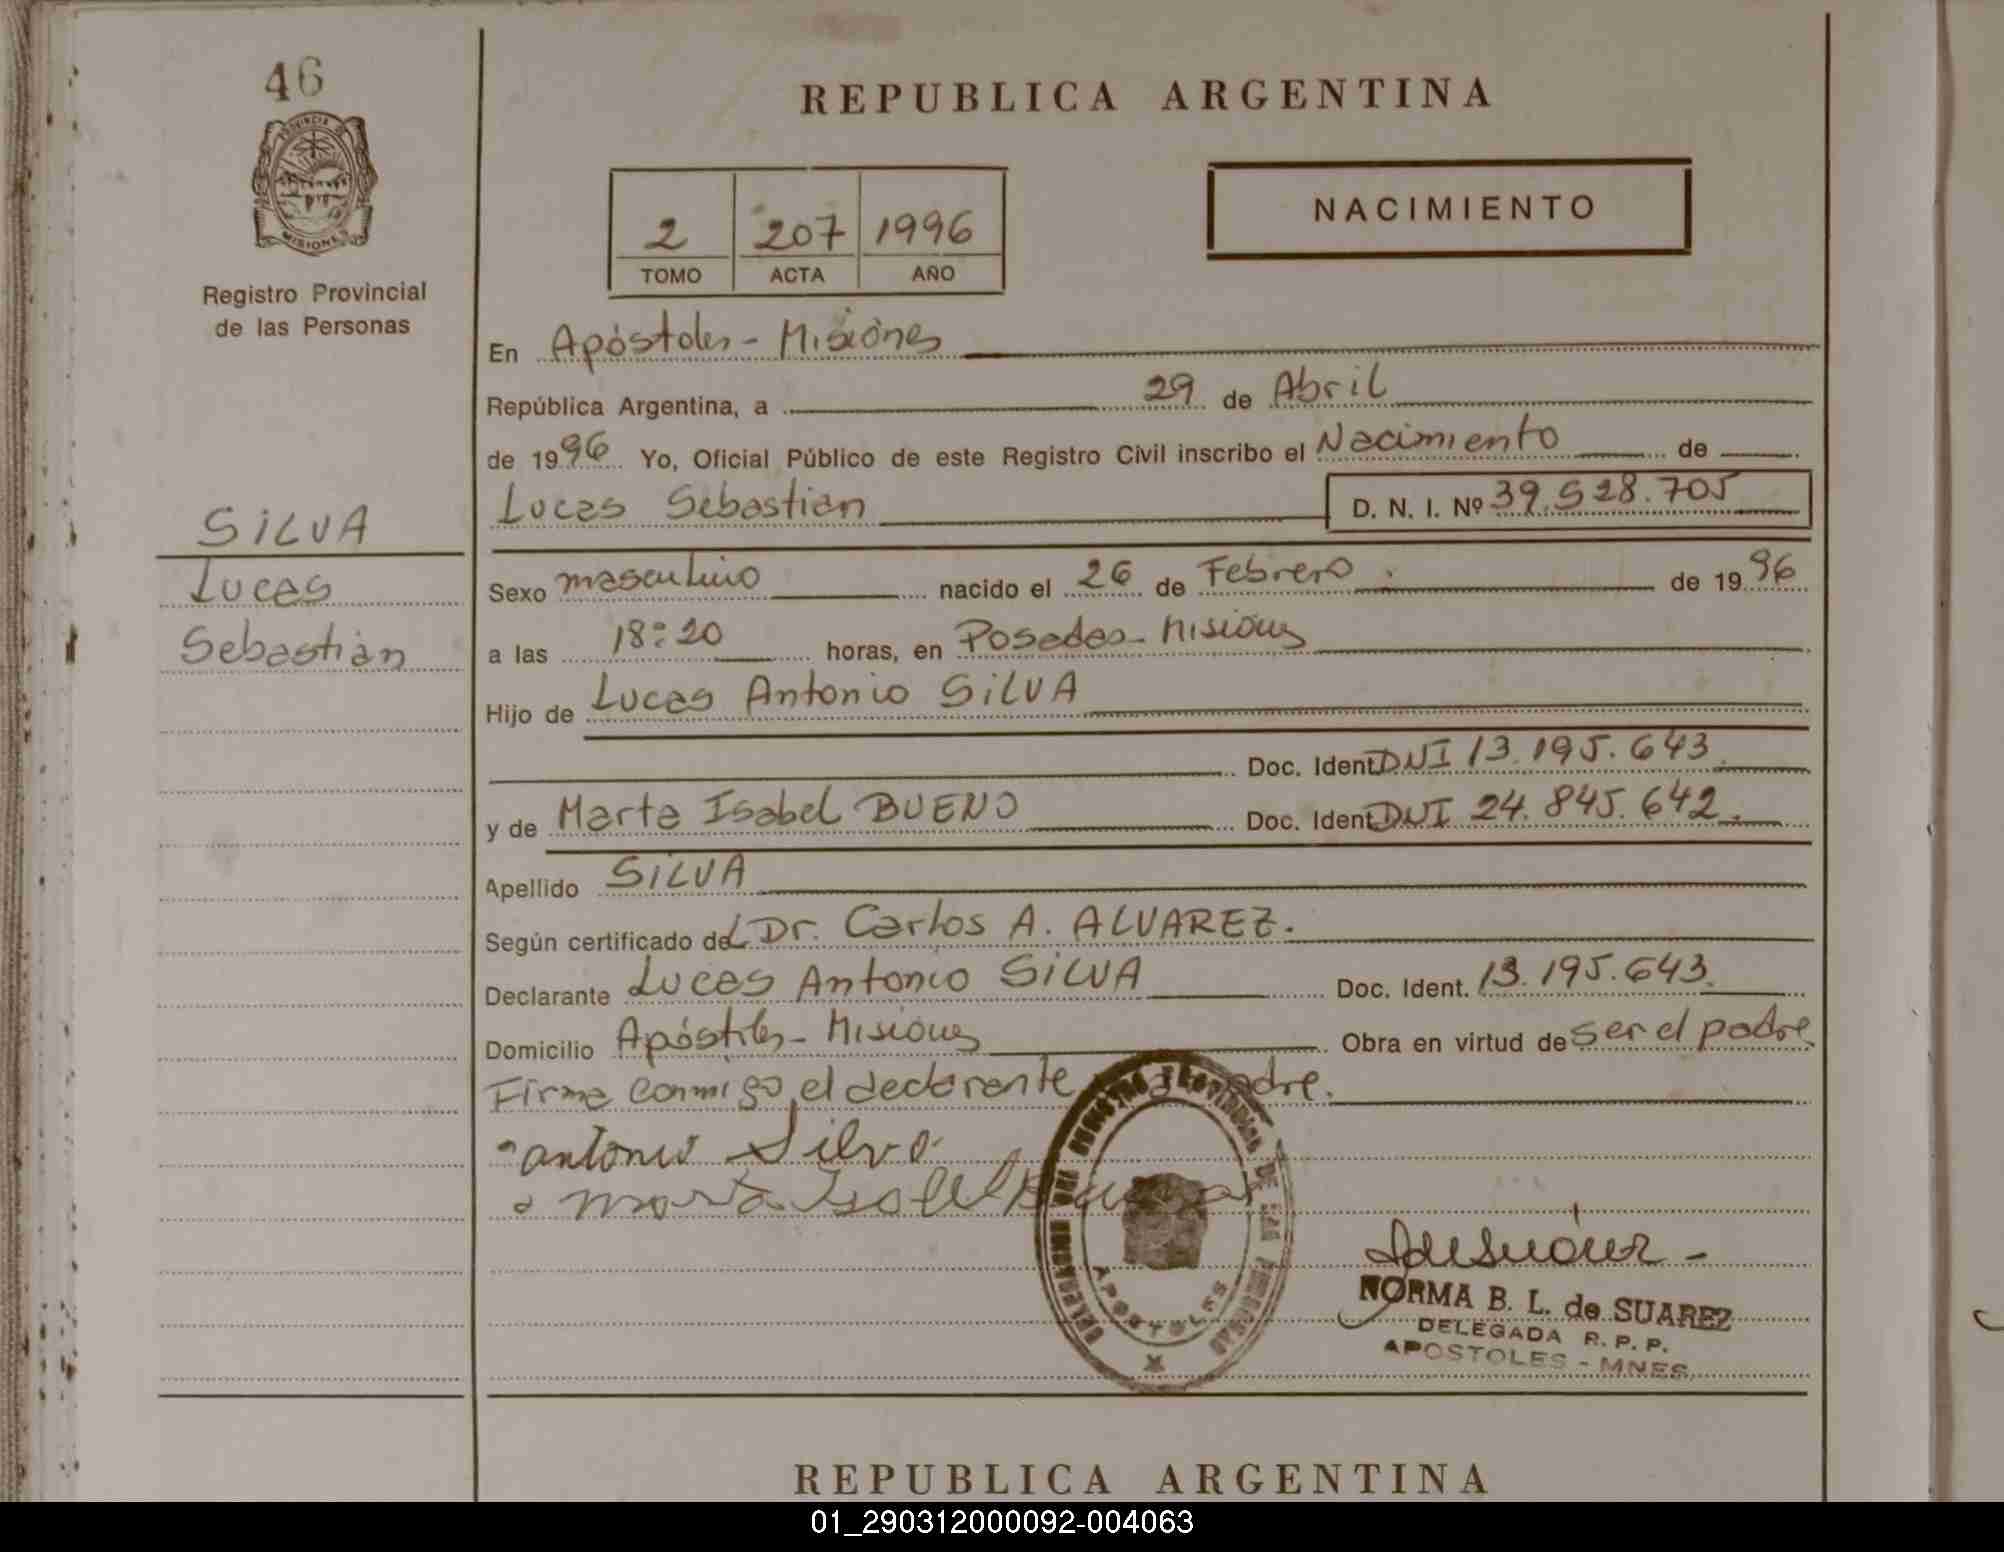 46
PROVINCIA DE
MISIONES
Registro Provincial
de las Personas
SILVA
Lucas
Sebastián
REPUBLICA ARGENTINA
2 207 1996
TOMO ACTA AÑO
NACIMIENTO
En Apóstoles - Misiones
República Argentina, a 29 de Abril
de 1996 Yo, Oficial Público de este Registro Civil inscribo el Nacimiento de
Lucas Sebastián D. N. I. Nº 39.528.705
Sexo masculino nacido el 26 de Febrero de 1996
a las 18:20 horas, en Posadas - Misiones
Hijo de Lucas Antonio SILVA
Doc. Ident. DNI 13.195.643
y de Marta Isabel BUENO Doc. Ident. DNI 24.845.642.
Apellido SILVA
Según certificado del Dr. Carlos A. ALVAREZ.
Declarante Lucas Antonio SILVA Doc. Ident. 13.195.643.
Domicilio Apóstoles - Misiones Obra en virtud de ser el padre
Firma conmigo el declarante madre.
antonio Silva
Marta Isabel
REGISTRO PROVINCIAL DE LAS PERSONAS
APOSTOLES
NORMA B. L. de SUAREZ
DELEGADA R. P. P.
APOSTOLES - MNES.
REPUBLICA ARGENTINA
01_290312000092-004063